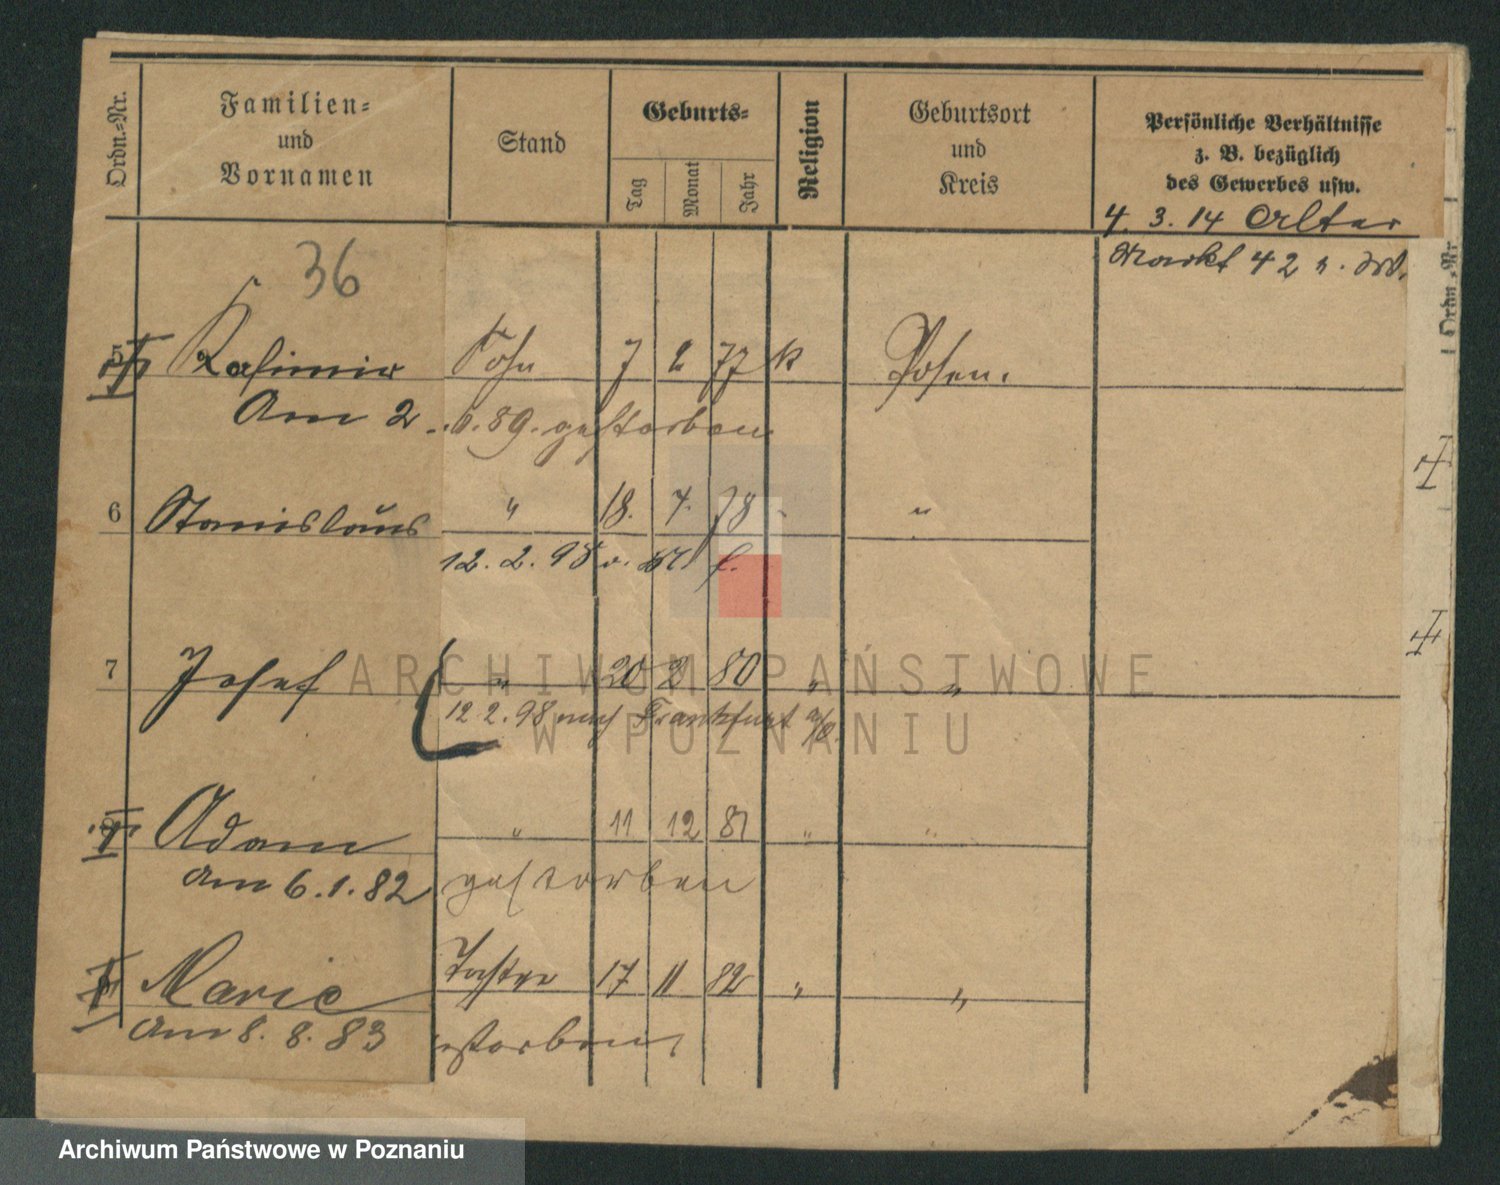 Ordn.-Nr.
Familien-
und
Vornamen
Stand
Geburts-
Tag
Monat
Jahr
Religion
Geburtsort
und
Kreis
Persönliche Verhältnisse
z. B. bezüglich
des Gewerbes usw.
4. 3. 14 Alter
Markt 42 n. W.
36
5 Kasimir Sohn 7 2 77 k Posen.
Am 2. 89. gestorben
6 Stanislaus " 18. 7. 78 "
12. 2. 98 v. f.
7 Josef " 20 2 80 " "
12. 2. 98 nach Frankfurt a/O.
8 Adam " 11 12 81 " "
am 6. 1. 82 gestorben
Marie Tochter 17 11 82 " "
am 8. 8. 83 estorben
Ordn.-Nr
ARCHIWUM PAŃSTWOWE
W POZNANIU
Archiwum Państwowe w Poznaniu